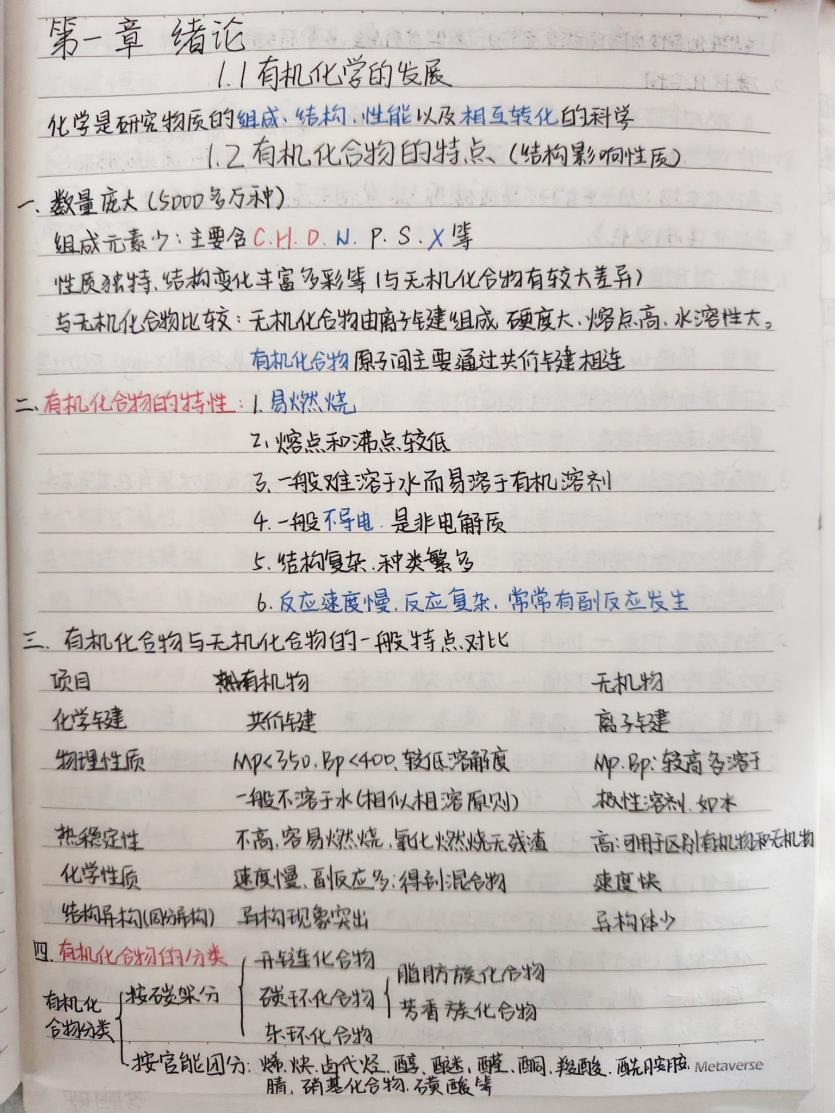 第一章 绪论
1.1 有机化学的发展
化学是研究物质的组成、结构、性能以及相互转化的科学
1.2 有机化合物的特点、(结构影响性质)
一、数量庞大(5000多万种)
组成元素少:主要含C.H.O.N.P.S.X等
性质独特、结构变化丰富多彩等(与无机化合物有较大差异)
与无机化合物比较:无机化合物由离子键组成 硬度大、熔点高、水溶性大。
有机化合物原子间主要通过共价键相连
二、有机化合物的特性:1.易燃烧
2.熔点和沸点较低
3.一般难溶于水而易溶于有机溶剂
4.一般不导电.是非电解质
5.结构复杂.种类繁多
6.反应速度慢.反应复杂.常常有副反应发生
三、有机化合物与无机化合物的一般特点对比
项目 有机物 无机物
化学键 共价键 离子键
物理性质 Mp<350.Bp<400.较低溶解度 Mp.Bp:较高多溶于
一般不溶于水(相似相溶原则) 极性溶剂.如水
热稳定性 不高.容易燃烧.氧化燃烧无残渣 高:可用于区别有机物和无机物
化学性质 速度慢、副反应多:得到混合物 速度快
结构异构(同分异构) 异构现象突出 异构体少
四.有机化合物的分类
有机化合物分类
按碳架分
开链连化合物
碳环化合物
脂肪族化合物
芳香族化合物
杂环化合物
按官能团分:烯.炔.卤代烃.醇.醚.醛.酮.羧酸.酰胺.胺
腈.硝基化合物.磺酸等
Metaverse